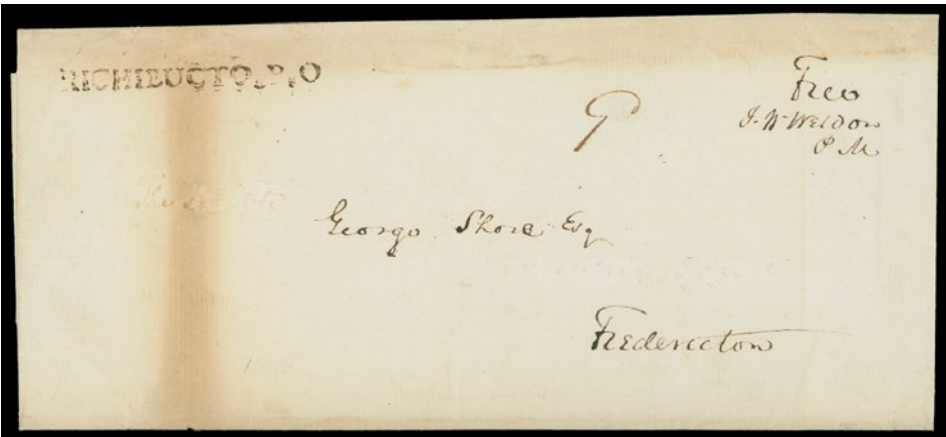 RICHIBUCTO, P, O
Free
J. W. Weldon
P M
9
George Shore Esq
Fredericton